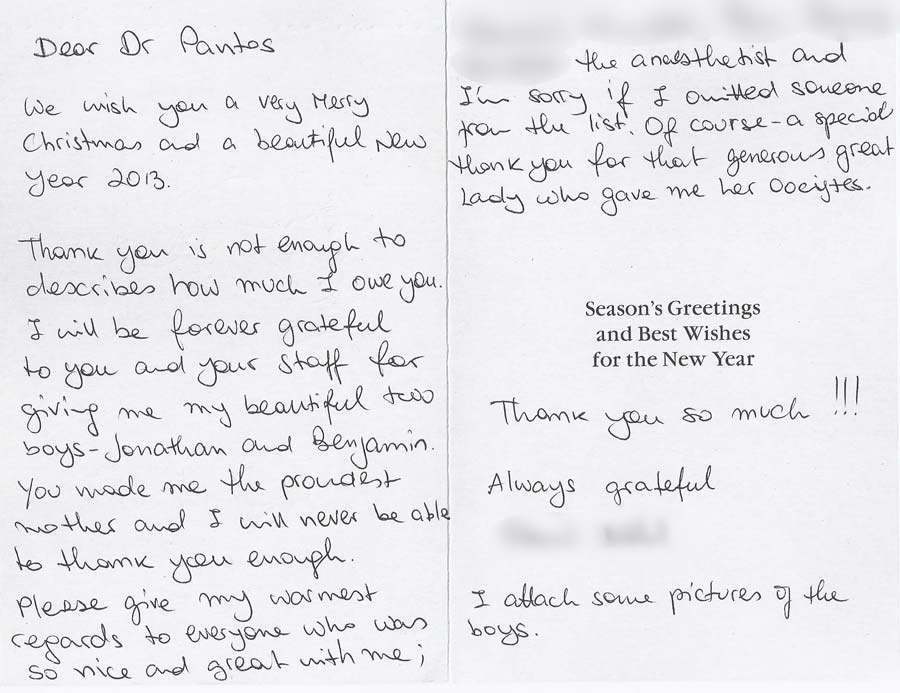 Dear Dr Pantos
We wish you a very Merry
Christmas and a beautiful New
Year 2013.
Thank you is not enough to
describes how much I owe you.
I will be forever grateful
to you and your staff for
giving me my beautiful two
boys - Jonathan and Benjamin.
You made me the proudest
mother and I will never be able
to thank you enough.
Please give my warmest
regards to everyone who was
so nice and great with me;
the anaesthetist and
I'm sorry if I omitted someone
from the list. Of course - a special
thank you for that generous great
Lady who gave me her Oocytes.
Season's Greetings
and Best Wishes
for the New Year
Thank you so much !!!
Always grateful
I attach some pictures of the
boys.